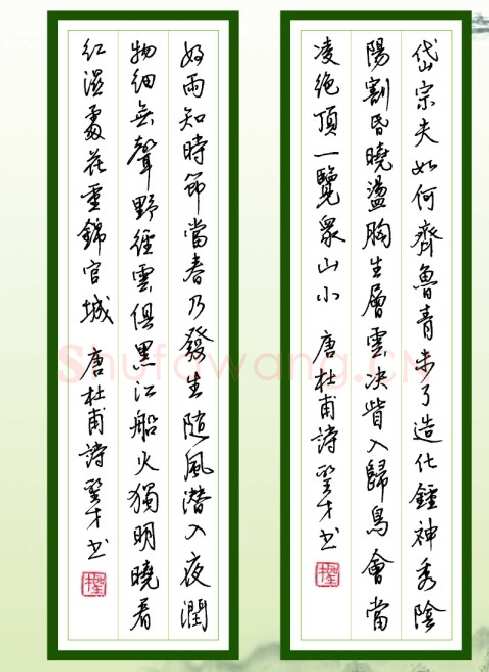 岱宗夫如何齊魯青未了造化鍾神秀陰
陽割昏曉盪胸生層雲決眥入歸鳥會當
凌絕頂一覽眾山小 唐杜甫詩賢才書
好雨知時節當春乃發生隨風潛入夜潤
物細無聲野徑雲俱黑江船火獨明曉看
紅濕處花重錦官城 唐杜甫詩賢才書
Shufawang.CN